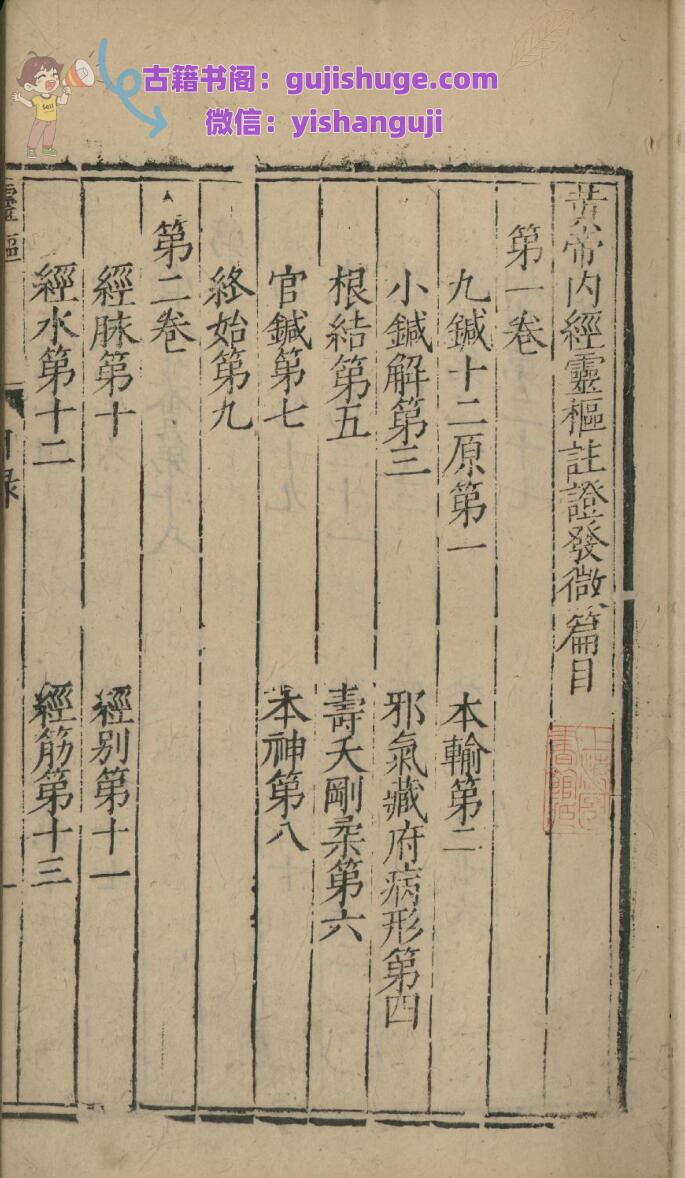 古籍书阁：gujishuge.com
微信：yishanguji
黃帝内經靈樞註證發微篇目
第一卷
九鍼十二原第一 本輸第二
小鍼解第三 邪氣藏府病形第四
根結第五 壽夭剛柔第六
官鍼第七 本神第八
終始第九
第二卷
經脉第十 經别第十一
經水第十二 經筋第十三
靈樞
目録
一